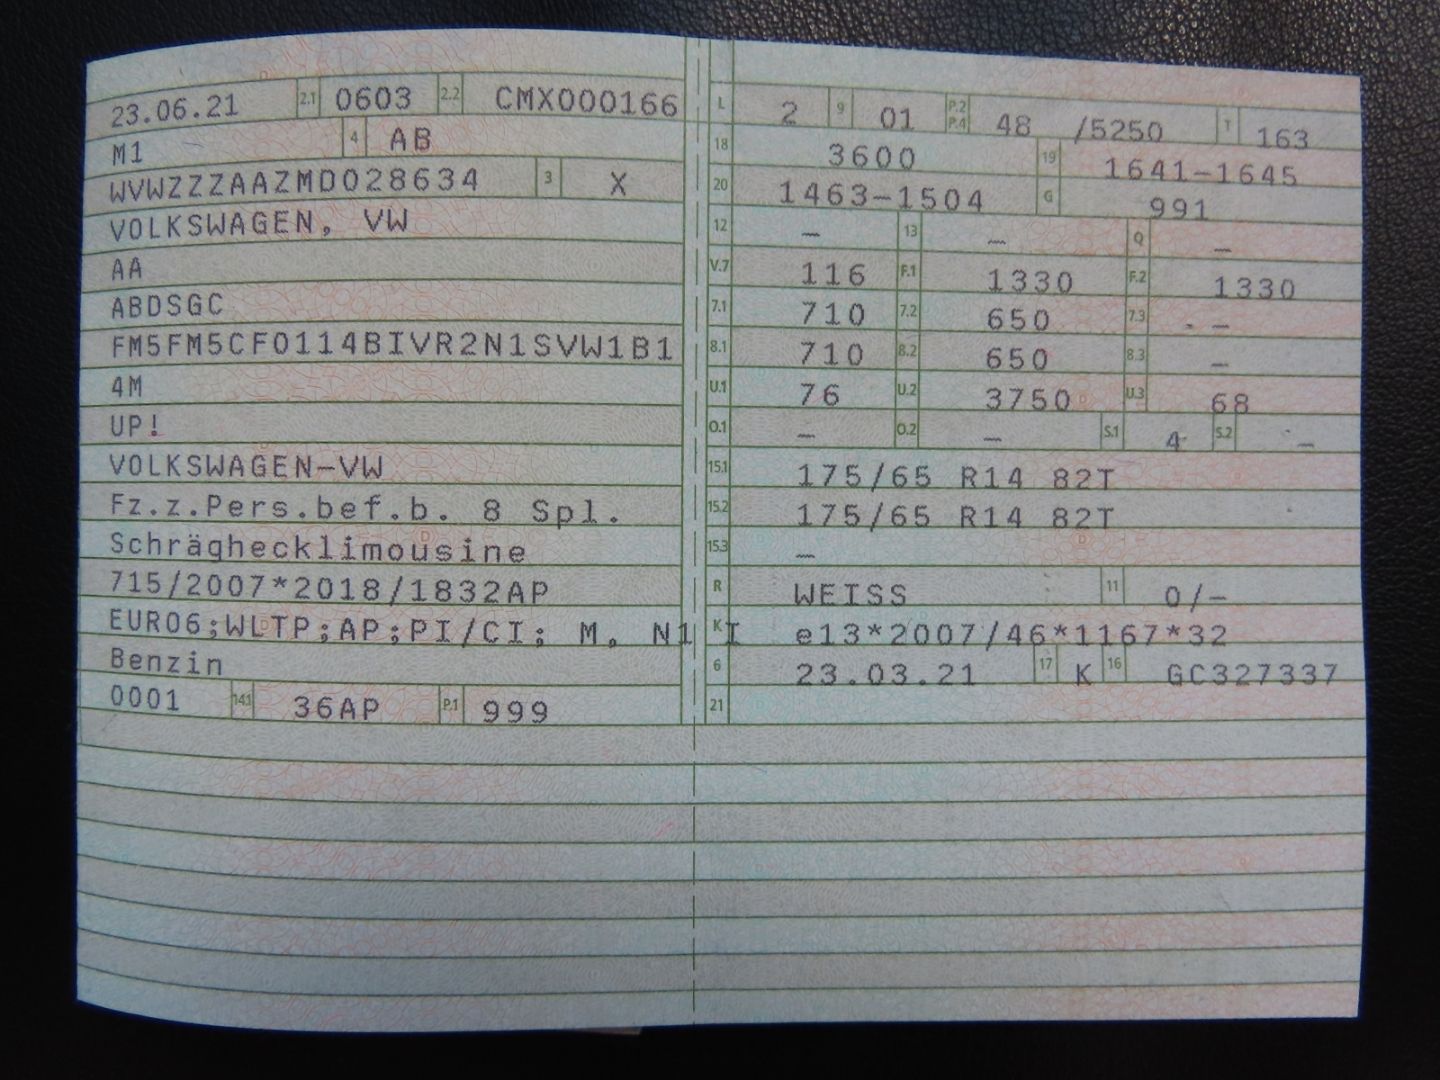 23.06.21 2.1 0603 2.2 CMX000166
M1 4 AB
WVWZZZAAZMD028634 3 X
VOLKSWAGEN, VW
AA
ABDSGC
FM5FM5CF0114BIVR2N1SVW1B1
4M
UP!
VOLKSWAGEN-VW
Fz.z.Pers.bef.b. 8 Spl.
Schräghecklimousine
715/2007*2018/1832AP
EURO6;WLTP;AP;PI/CI; M, N1 I
Benzin
0001 14.1 36AP P.1 999
L 2 9 01 P.2 P.4 48 /5250 T 163
18 3600 19 1641-1645
20 1463-1504 G 991
12 — 13 — Q —
V.7 116 F.1 1330 F.2 1330
7.1 710 7.2 650 7.3 —
8.1 710 8.2 650 8.3 —
U.1 76 U.2 3750 U.3 68
O.1 — O.2 — S.1 4 S.2 —
15.1 175/65 R14 82T
15.2 175/65 R14 82T
15.3 —
R WEISS 11 0/-
K e13*2007/46*1167*32
6 23.03.21 17 K 16 GC327337
21